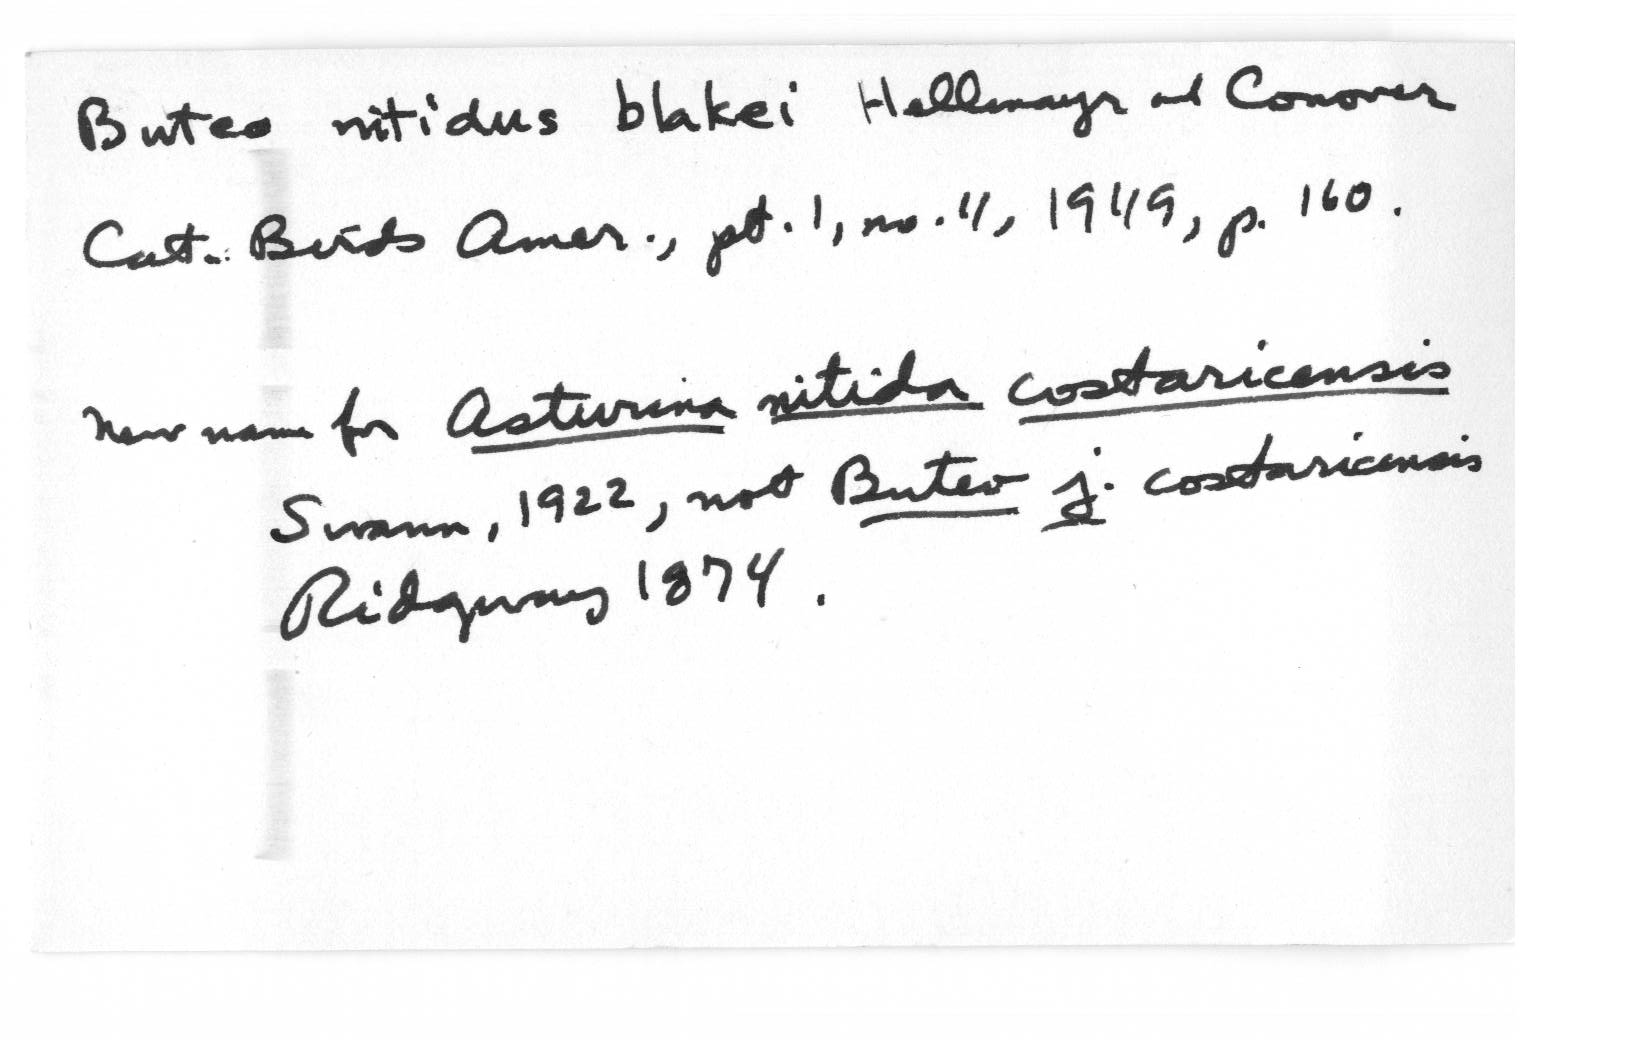 Buteo nitidus blakei Hellmayr and Conover
Cat. Birds Amer., pt. 1, no. 4, 1949, p. 160.
New name for Asturina nitida costaricensis
Swann, 1922, not Buteo j. costaricensis
Ridgway 1874.